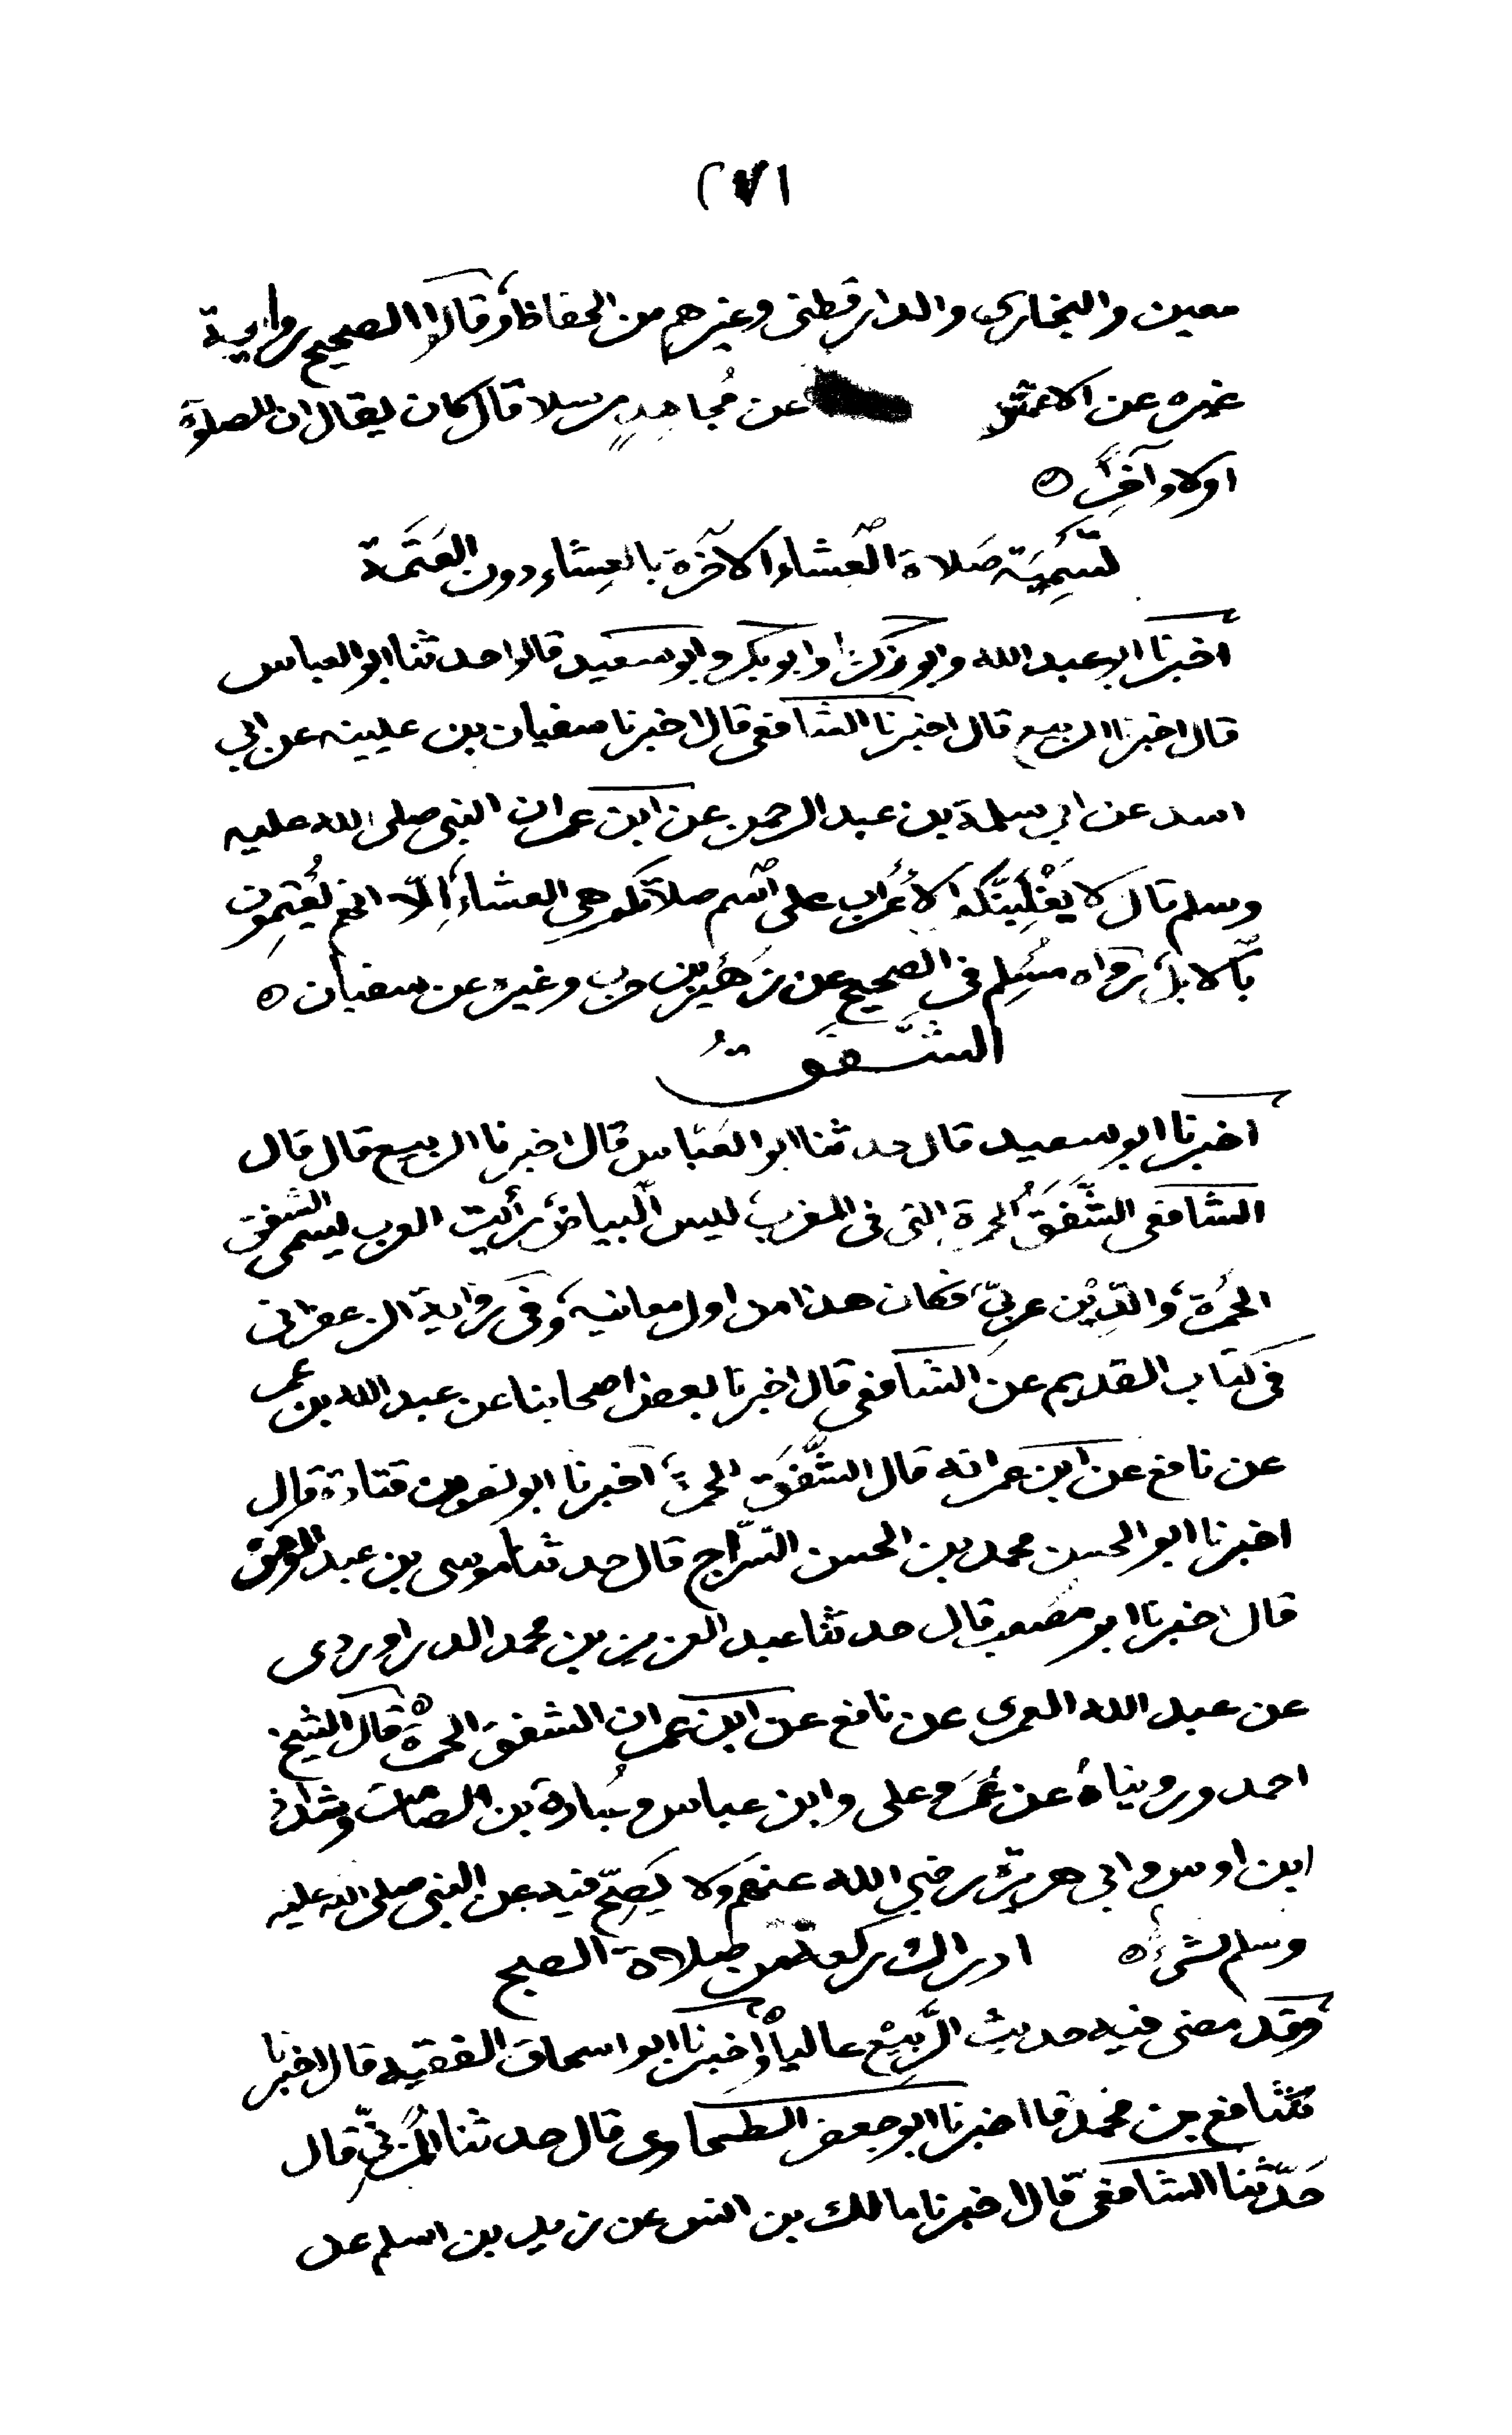 (٧١
معين والبخاري والدارقطني وغيرهم من الحفاظ، وقالوا الصحيح رواية
غيره عن الاعمش عن مُجاهدٍ مرسلا قال كان يقال ان للصلوة
اولا وآخراً ه
تسمِيَة صَلاة العشاء الآخرة بالعِشاء دون العَتَمة
اخبرنا ابو عبد الله وابو زكريا وابو بكر وابو سعيد قالوا حدثنا ابو العباس
قال اخبرنا الربيع قال اخبرنا الشافعي قال اخبرنا سفيان بن عيينه عن ابي
اسد عن ابي سلمة بن عبد الرحمن عن ابن عمر ان النبي صلى الله عليه
وسلم قال لا يَغْلِبَنَّكم الأعْراب على اسم صلاتكم هي العشاء، إلّا انهم يُعتِمون
بالابل، رواه مسُلم في الصحيح عن زهَيْر بن حرب وغيره عن سفيان ه
الشَّفَقُ
اخبرنا ابو سعيد قال حدثنا ابو العَبّاس قال اخبرنا الربيع قال قال
الشافعي الشَّفَقُ الحمرة التي في المغرب، ليس البياض، رأيت العرب يسمى الشفق
الحمُرة، والدِّيْن عربيّ، فكان هذا من اول معانيه، وفي رواية الزعفراني
في كتاب القديم عن الشافعي قال اخبرنا بعض اصحابنا عن عبد الله بن عمر
عن نافع عن ابن عمر انه قال الشَّفَق الحمرة، اخبرنا ابو نصر من قتادة قال
اخبرنا ابو الحسن محمد بن الحسن السّراج قال حدثنا موسى بن عبد المؤمن
قال اخبرنا ابو مصعب قال حدثنا عبد العزيز بن محمد الدراوردى
عن عبد الله العمري عن نافع عن ابن عمر ان الشفق الحمرة ه قال الشيخ
احمد وروينَاهُ عن عُمَر وعلى وابن عباس وعُبادة بن الصامت وشداد
ابن اوس وابي هريرة رضي الله عنهم ولا يَصِحّ فيه عن النبي صلى الله عليه
وسلم شئ ه ادراك ركعة من صلاة الصبح
وقد مضى فيه حديث الرَّبيْع عالياً، واخبرنا ابو اسحاق الفقيه قال اخبرنا
شافع بن محمد قا اخبرنا ابو جعفر الطحاوى قال حدثنا المُزنيّ قال
حَدّثنا الشافعي قال اخبرنا مالك بن انس عن زيد بن اسلم عن